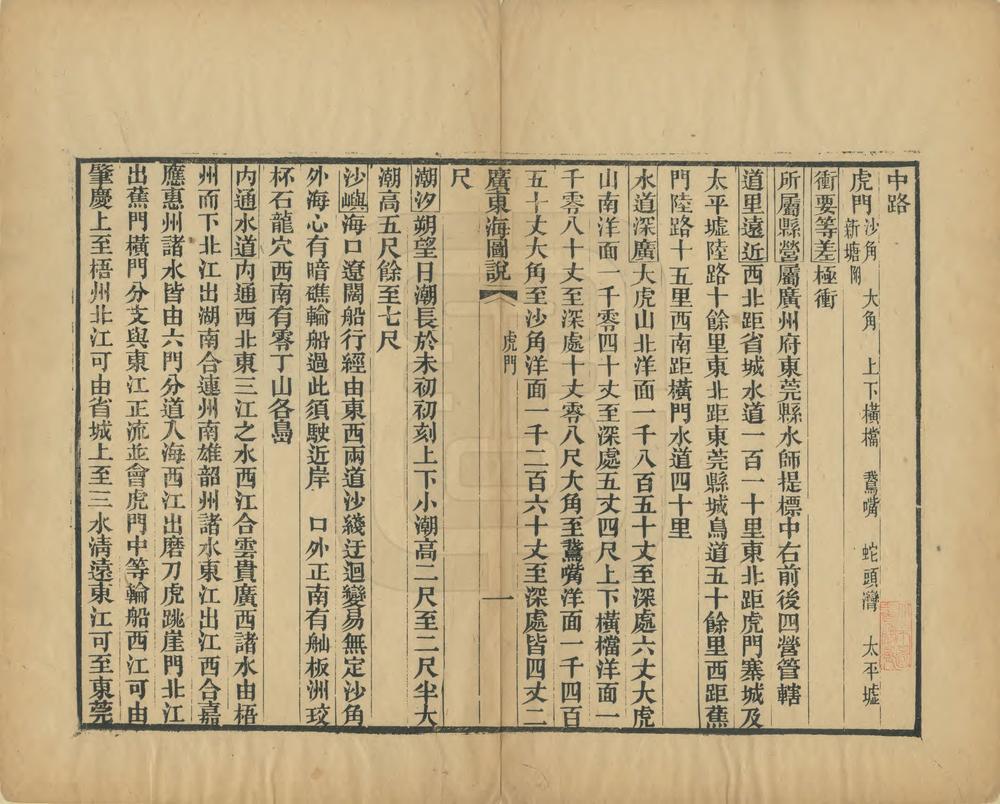 中路
虎門 沙角 大角 上下橫檔 鵞嘴 蛇頭灣 太平墟 新塘附
衝要等差極衝
所屬縣營屬廣州府東莞縣水師提標中右前後四營管轄
道里遠近西北距省城水道一百一十里東北距虎門寨城及
太平墟陸路十餘里東北距東莞縣城鳥道五十餘里西距蕉
門陸路十五里西南距橫門水道四十里
水道深廣大虎山北洋面一千八百五十丈至深處六丈大虎
山南洋面一千零四十丈至深處五丈四尺上下橫檔洋面一
千零八十丈至深處十丈零八尺大角至鵞嘴洋面一千四百
五十丈大角至沙角洋面一千二百六十丈至深處皆四丈二
廣東海圖說 虎門 一
尺
潮汐朔望日潮長於未初初刻上下小潮高二尺至二尺半大
潮高五尺餘至七尺
沙嶼海口遼闊船行經由東西兩道沙綫迂迴變易無定沙角
外海心有暗礁輪船過此須駛近岸 口外正南有舢板洲珓
杯石龍穴西南有零丁山各島
內通水道內通西北東三江之水西江合雲貴廣西諸水由梧
州而下北江出湖南合連州南雄韶州諸水東江出江西合嘉
應惠州諸水皆由六門分道入海西江出磨刀虎跳崖門北江
出蕉門橫門分支與東江正流並會虎門中等輪船西江可由
肇慶上至梧州北江可由省城上至三水清遠東江可至東莞